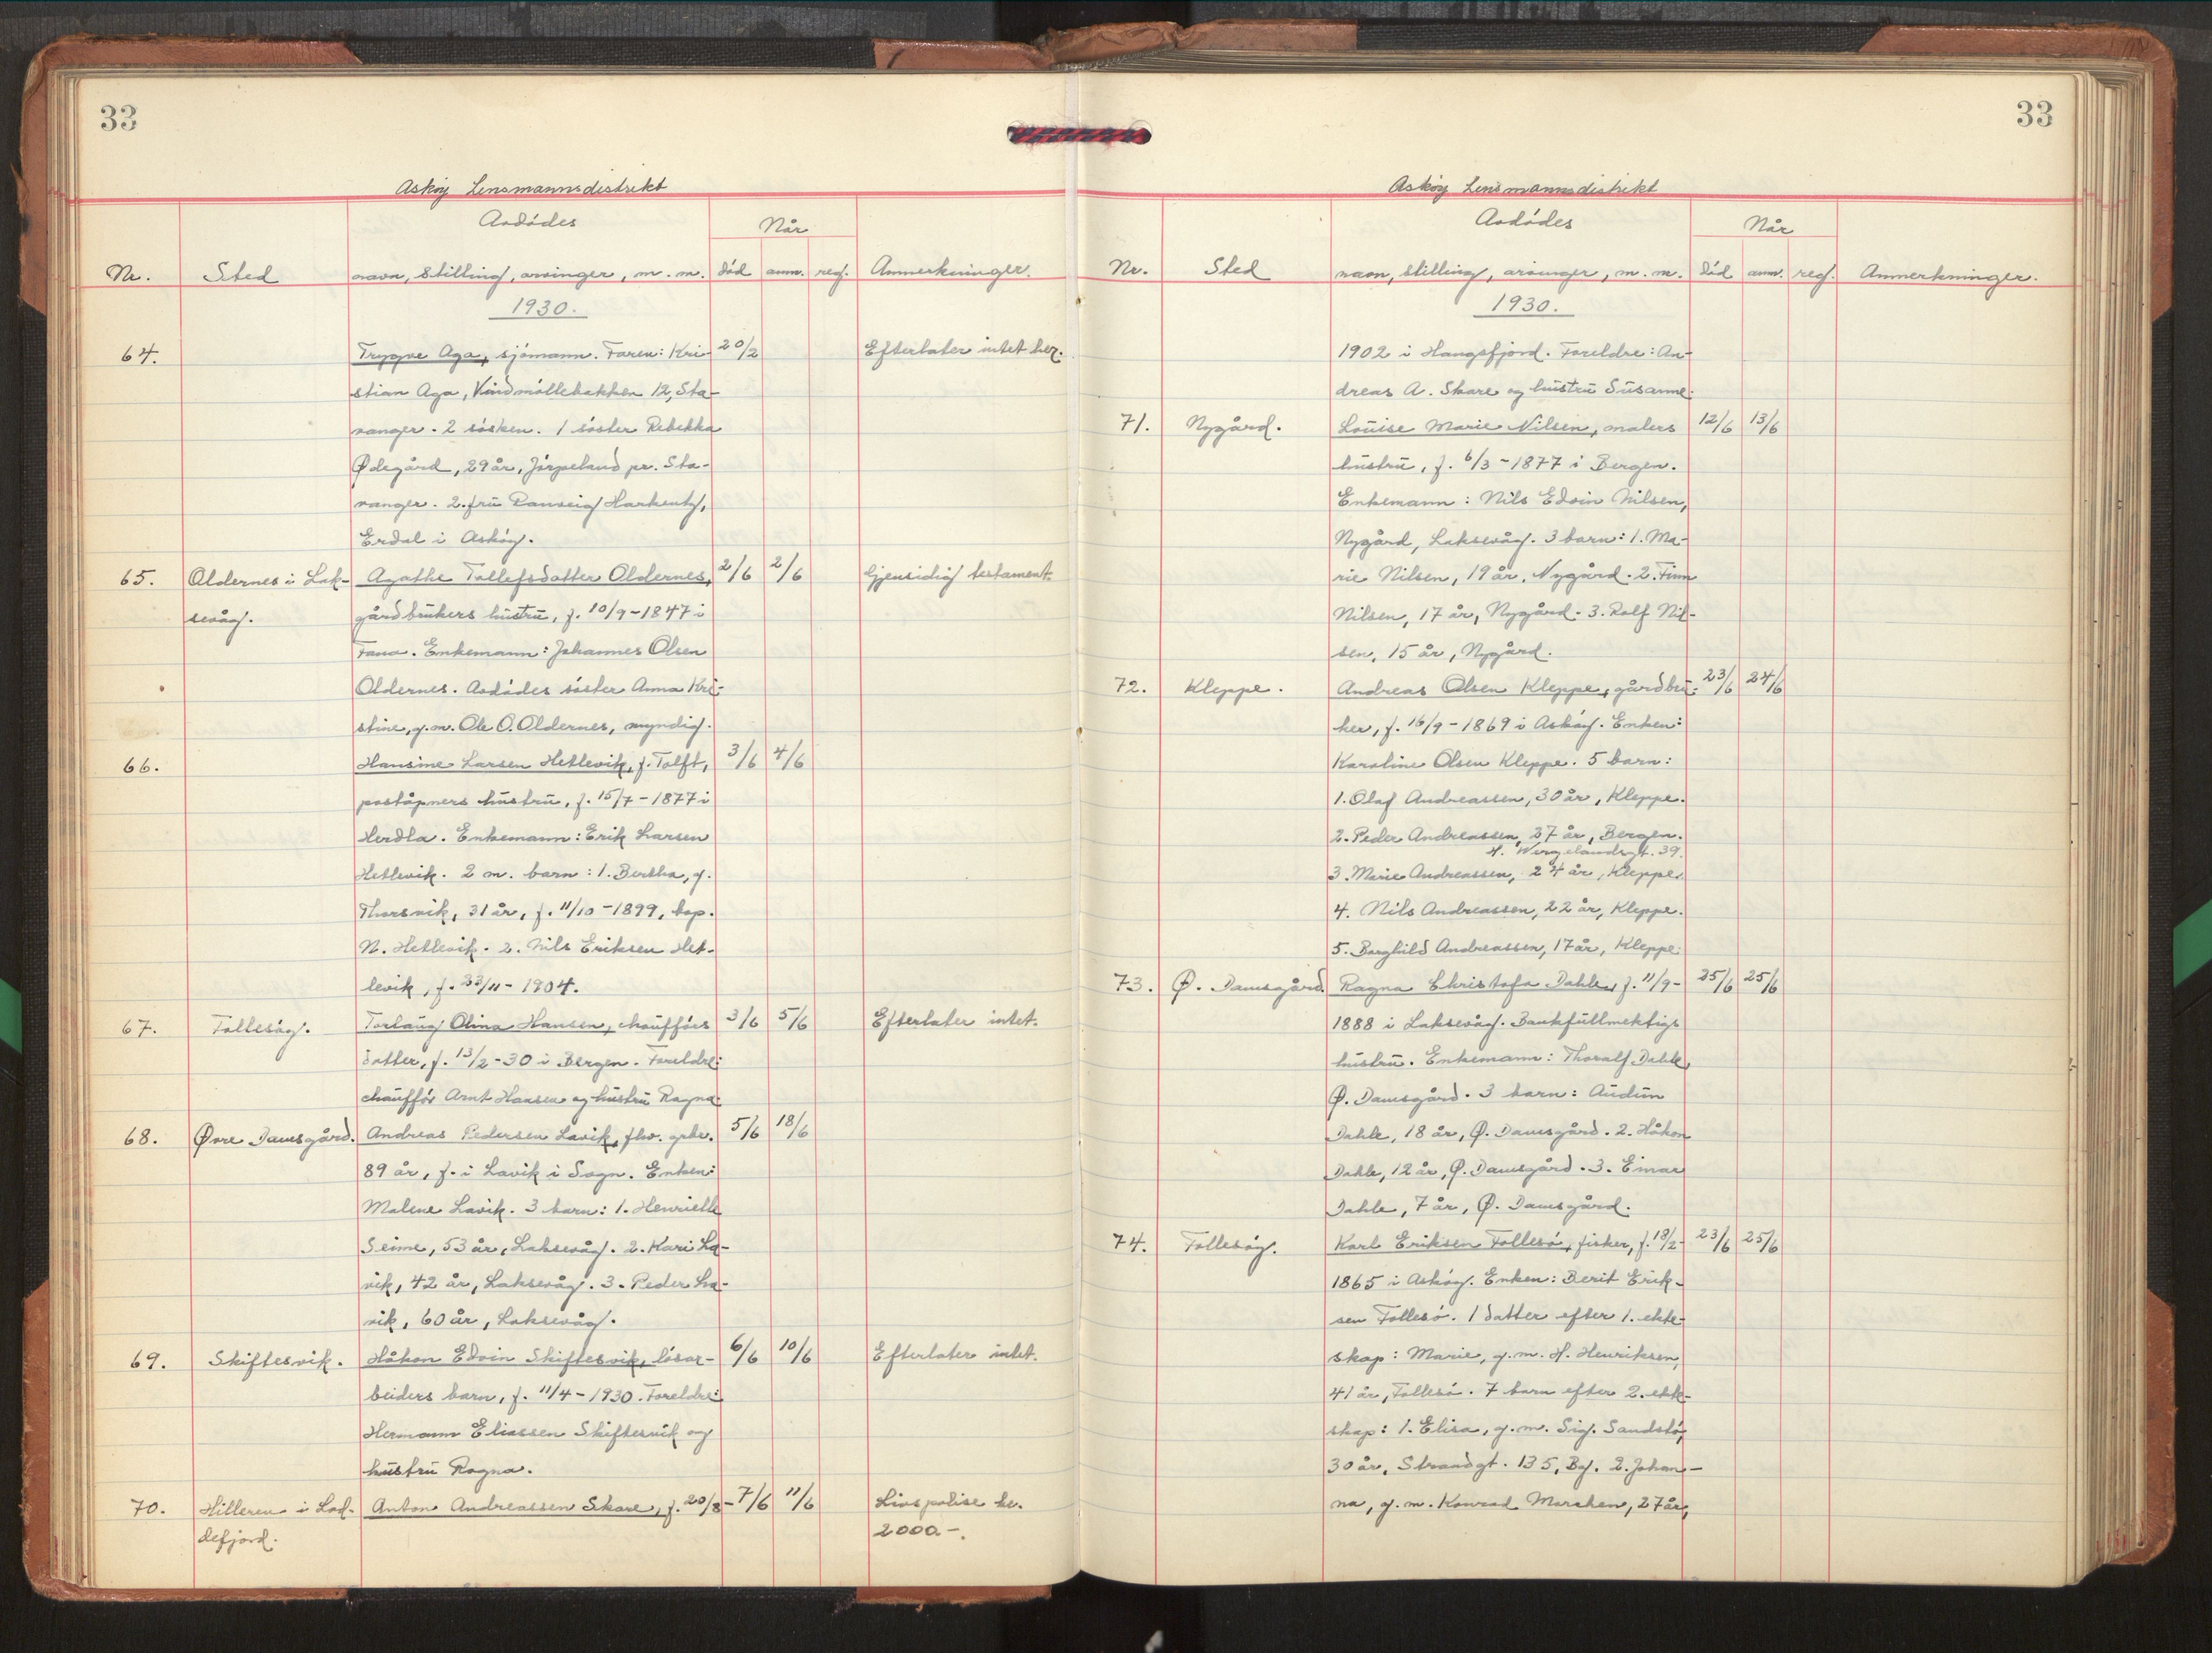 33
Askøy Lensmannsdistrikt
Avdødes
Når
Nr. Sted navn, stilling, arvinger, m. m. død anm. reg. Anmerkninger.
1930.
64. Trygve Aga, sjømann. Faren: Kri- 20/2 Efterlater intet her.
stian Aga, Vindmøllebakken 12, Sta-
vanger. 2 søsken. 1 søster Rebekka
Ødegård, 29 år, Jørpeland pr. Sta-
vanger. 2. fru Ranveig
Erdal i Askøy.
65. Oldernes i Lak- Agathe Tollefsdatter Oldernes, 2/6 2/6 Gjensidig testament.
sevåg. gårdbrukers hustru, f. 10/9-1847 i
Fana. Enkemann: Johannes Olsen
Oldernes. Avdødes søster Anna Kri-
stine, g.m. Ole O. Oldernes, myndig.
66. Hansine Larsen Hetlevik, f. Tolft, 3/6 4/6
poståpners hustru, f. 15/7-1877 i
Herdla. Enkemann: Erik Larsen
Hetlevik. 2 m. barn: 1. Bertha, g.
Thorsvik, 31 år, f. 11/10-1899, bop.
N. Hetlevik. 2. Nils Eriksen Het-
levik, f. 23/11-1904.
67. Follesøy. Torlaug Olina Hansen, chaufførs 3/6 5/6 Efterlater intet.
datter, f. 13/2-30 i Bergen. Foreldre:
chauffør Arnt Hansen og hustru Ragna.
68. Øvre Damsgård. Andreas Pedersen Lavik, fhv. grbr. 5/6 18/6
89 år, f. i Lavik i Sogn. Enken:
Malene Lavik. 3 barn: 1. Henriette
Seime, 53 år, Laksevåg. 2. Kari La-
vik, 42 år, Laksevåg. 3. Peder La-
vik, 60 år, Laksevåg.
69. Skiftesvik. Håkon Edvin Skiftesvik, løsar- 6/6 10/6 Efterlater intet.
beiders barn, f. 11/4-1930. Foreldre:
Hermann Eliassen Skiftesvik og
hustru Ragna.
70. Hilleren i Lod- Anton Andreassen Skare, f. 20/8- 7/6 11/6 Livspolise kr.
defjord. 2000.-.
33
Askøy Lensmannsdistrikt
Avdødes
Når
Nr. Sted navn, stilling, arvinger, m. m. død anm. reg. Anmerkninger.
1930.
1902 i Haugsfjord. Foreldre: An-
dreas A. Skare og hustru Susanne.
71. Nygård. Louise Marie Nilsen, malers 12/6 13/6
hustru, f. 6/3-1877 i Bergen.
Enkemann: Nils Edvin Nilsen,
Nygård, Laksevåg. 3 barn: 1. Ma-
rie Nilsen, 19 år, Nygård. 2. Finn
Nilsen, 17 år, Nygård. 3. Rolf Nil-
sen, 15 år, Nygård.
72. Kleppe. Andreas Olsen Kleppe, gårdbru- 23/6 24/6
ker, f. 16/9-1869 i Askøy. Enken:
Karoline Olsen Kleppe. 5 barn:
1. Olaf Andreassen, 30 år, Kleppe.
2. Peder Andreassen, 37 år, Bergen.
H. Wergelandsgt. 39.
3. Marie Andreassen, 24 år, Kleppe.
4. Nils Andreassen, 22 år, Kleppe.
5. Borghild Andreassen, 17 år, Kleppe.
73. Ø. Damsgård. Ragna Christofa Dahle, f. 11/9- 25/6 25/6
1888 i Laksevåg. Bankfullmektigs
hustru. Enkemann: Thoralf Dahle,
Ø. Damsgård. 3 barn: Audun
Dahle, 18 år, Ø. Damsgård. 2. Håkon
Dahle, 12 år, Ø. Damsgård. 3. Einar
Dahle, 7 år, Ø. Damsgård.
74. Follesøy. Karl Eriksen Follesø, fisker, f. 18/2- 23/6 25/6
1865 i Askøy. Enken: Berit Erik-
sen Follesø. 1 datter efter 1. ekte-
skap: Marie, g.m. H. Henriksen,
41 år, Follesø. 7 barn efter 2. ekte-
skap: 1. Elisa, g.m. Sig. Sandslø,
30 år, Strandgt. 135, Bg. 2. Johan-
na, g.m. Konrad Marøken, 27 år,